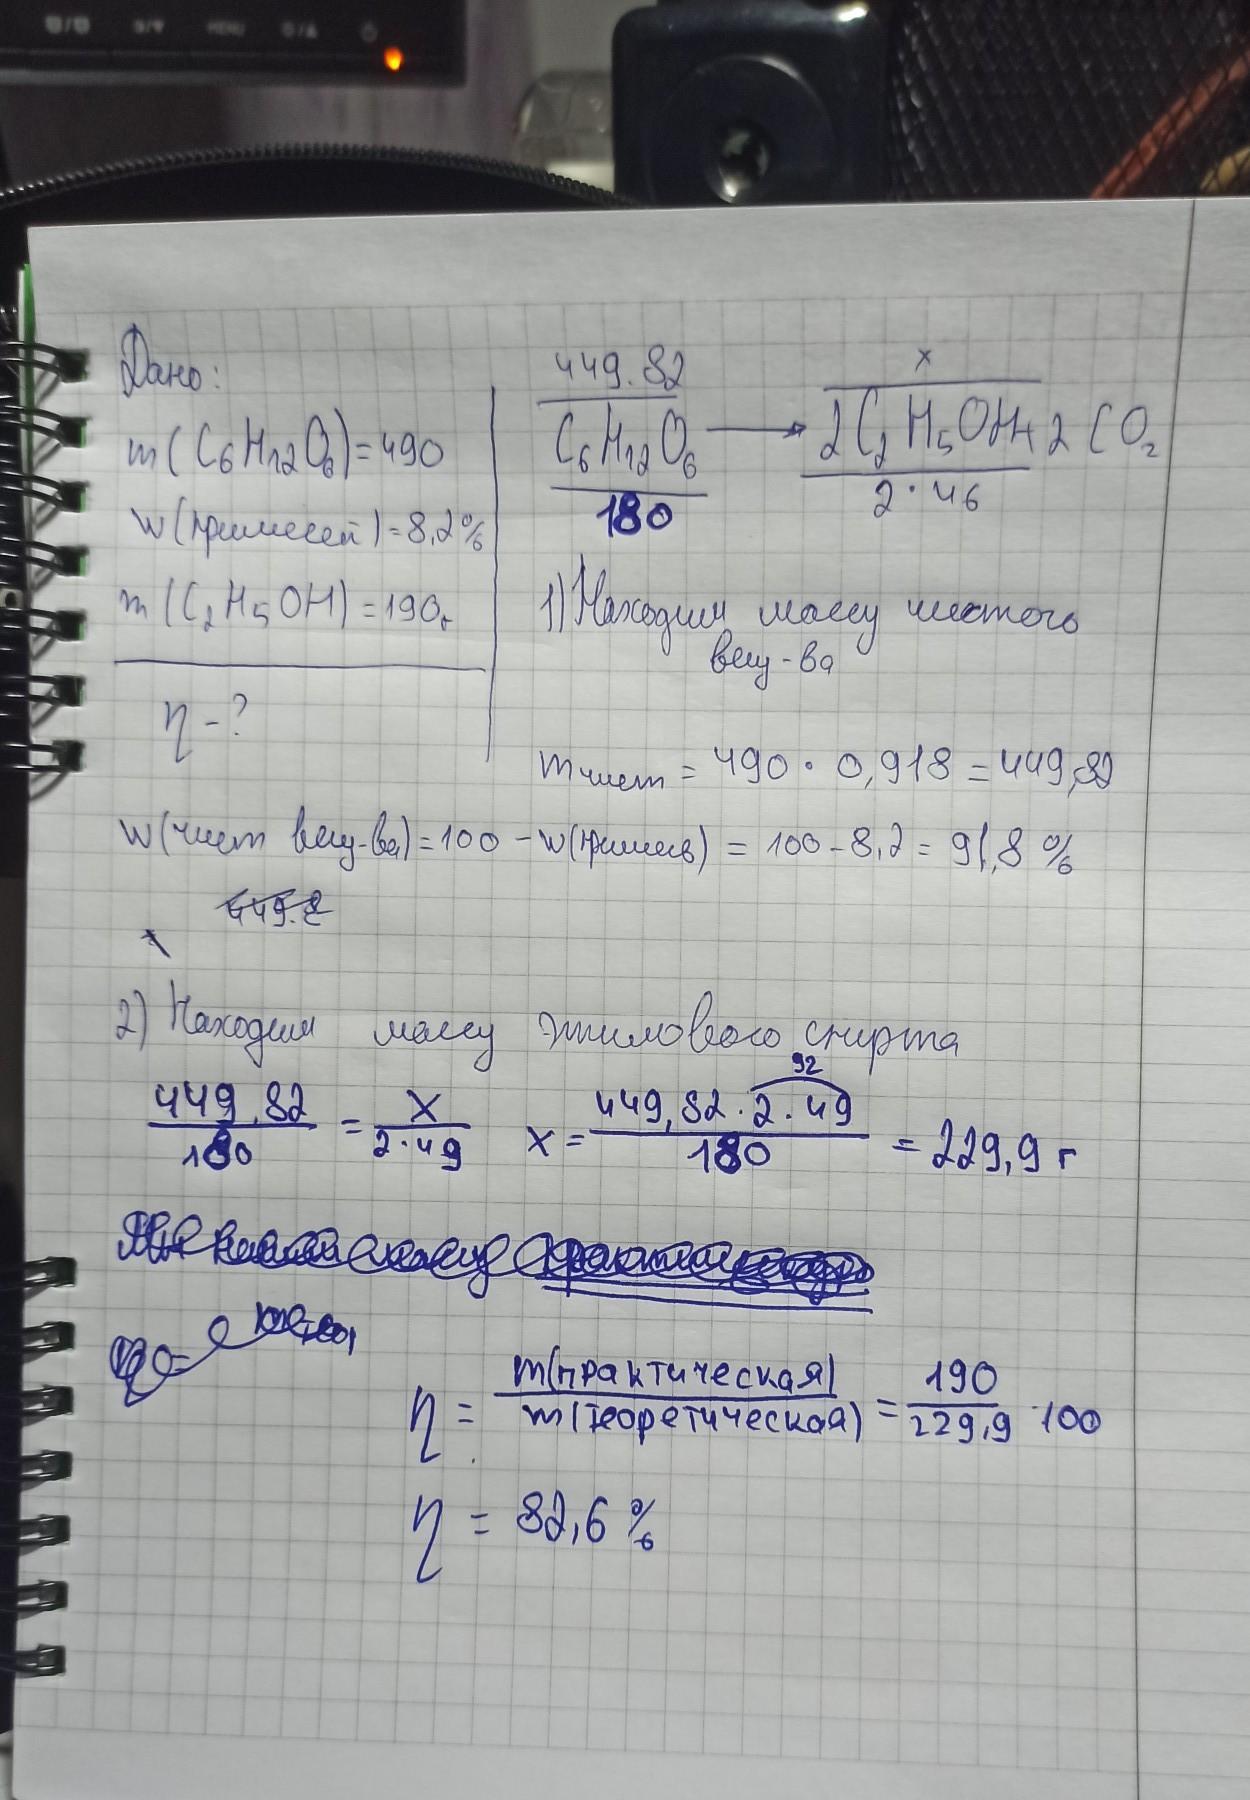 MENU
Дано:
m(C6H12O6)=490
w(примесей)=8,2%
m(C2H5OH)=190г
η-?
449.82 x
C6H12O6 → 2C2H5OH+2CO2
180 2·46
1) Находим массу чистого
вещ-ва
m чист = 490 · 0,918 = 449,82
w(чист вещ-ва)=100-w(примесь) = 100-8,2 = 91,8 %
449.8
2) Находим массу этилового спирта
92
449,82/180 = X/2·49 X = 449,82·2·49/180 = 229,9 г
η = m(практическая)/m(теоретическая) = 190/229,9 · 100
η = 82,6 %